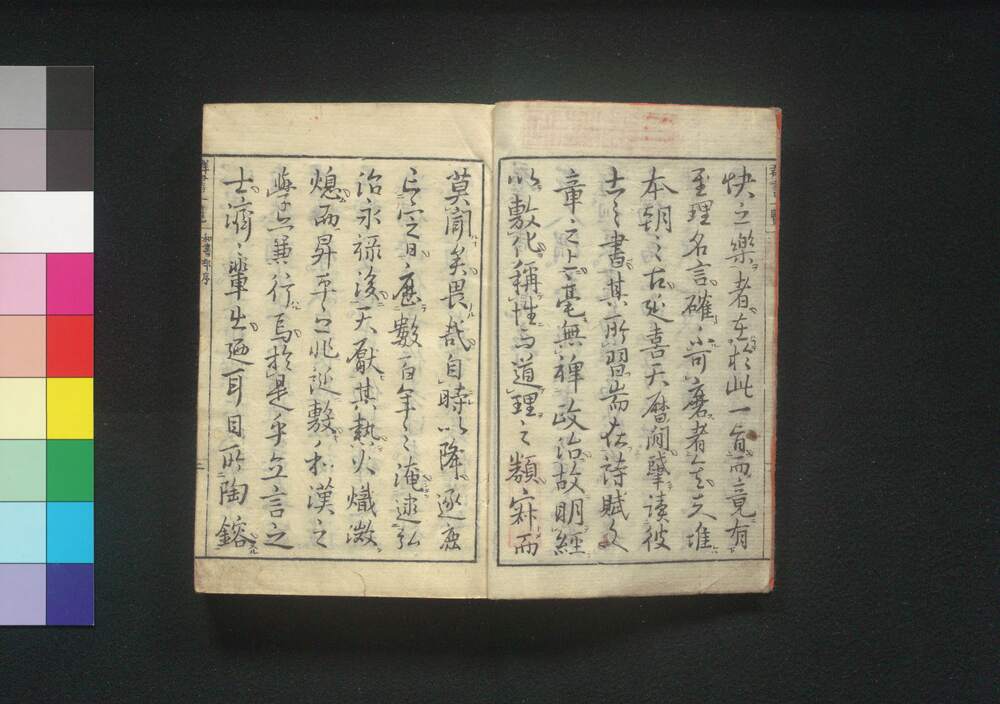 快之樂者在於此一旨而竟有
至理名言確不可磨者矣夫惟
本朝之古延喜天曆間肄讀彼
土之書其所習耑在詩賦文
章之上毫無裨政治故明經
以敷化稱性与道理之類寂而
莫聞矣畏哉自時以降逐
之日歷數百年之淹逮弘
治永祿後天厭其熱火熾微
熄而昇平之兆延敷和漢之
學亦兼行焉於是乎立言之
士濟々輩出廼耳目所陶鎔